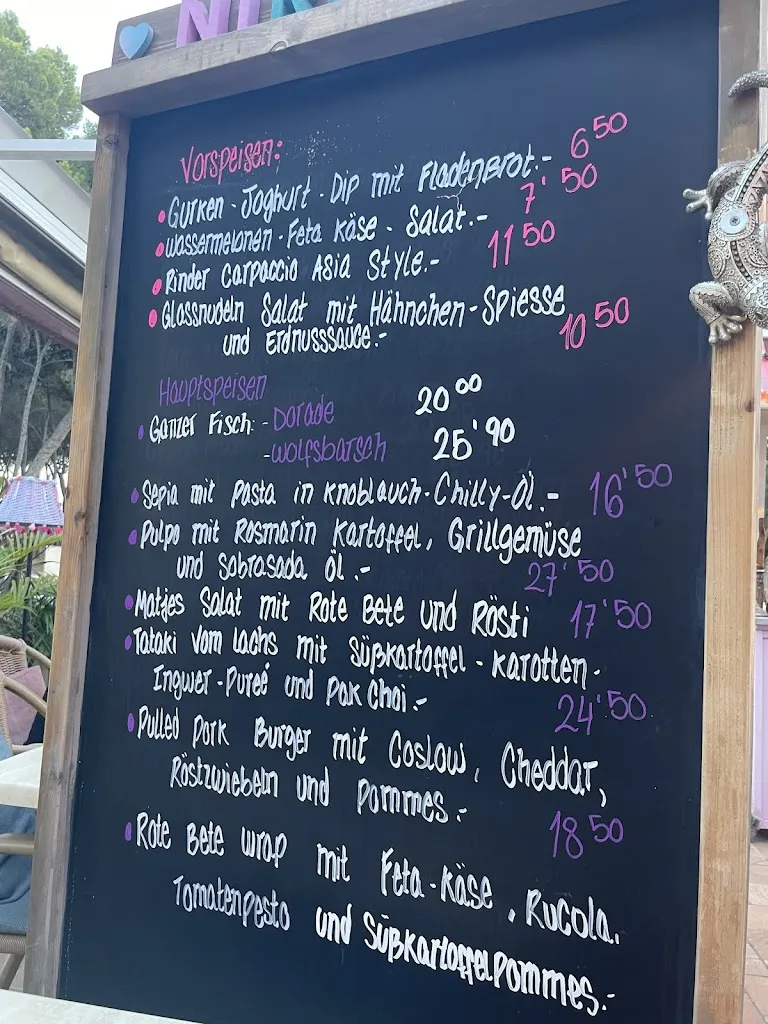 NIK
Vorspeisen:
• Gurken - Joghurt - Dip mit Fladenbrot.- 6 50
• Wassermelonen - Feta Käse - Salat.- 7' 50
• Rinder Carpaccio Asia Style.- 11 50
• Glassnudeln Salat mit Hähnchen - Spiesse
und Erdnusssauce.- 10 50
Hauptspeisen
• Ganzer Fisch: - Dorade 20 00
- Wolfsbarsch 25' 90
• Sepia mit Pasta in Knoblauch - Chilly - Öl.- 16' 50
• Pulpo mit Rosmarin Kartoffel, Grillgemüse
und Sobrasada Öl.- 27' 50
• Matjes Salat mit Rote Bete und Rösti 17' 50
• Tataki vom Lachs mit Süßkartoffel - Karotten -
Ingwer - Pureé und Pak Choi.- 24' 50
• Pulled Pork Burger mit Coslow, Cheddar,
Röstzwiebeln und Pommes.- 18 50
• Rote Bete Wrap mit Feta - Käse, Rucola,
Tomatenpesto und Süßkartoffelpommes.-